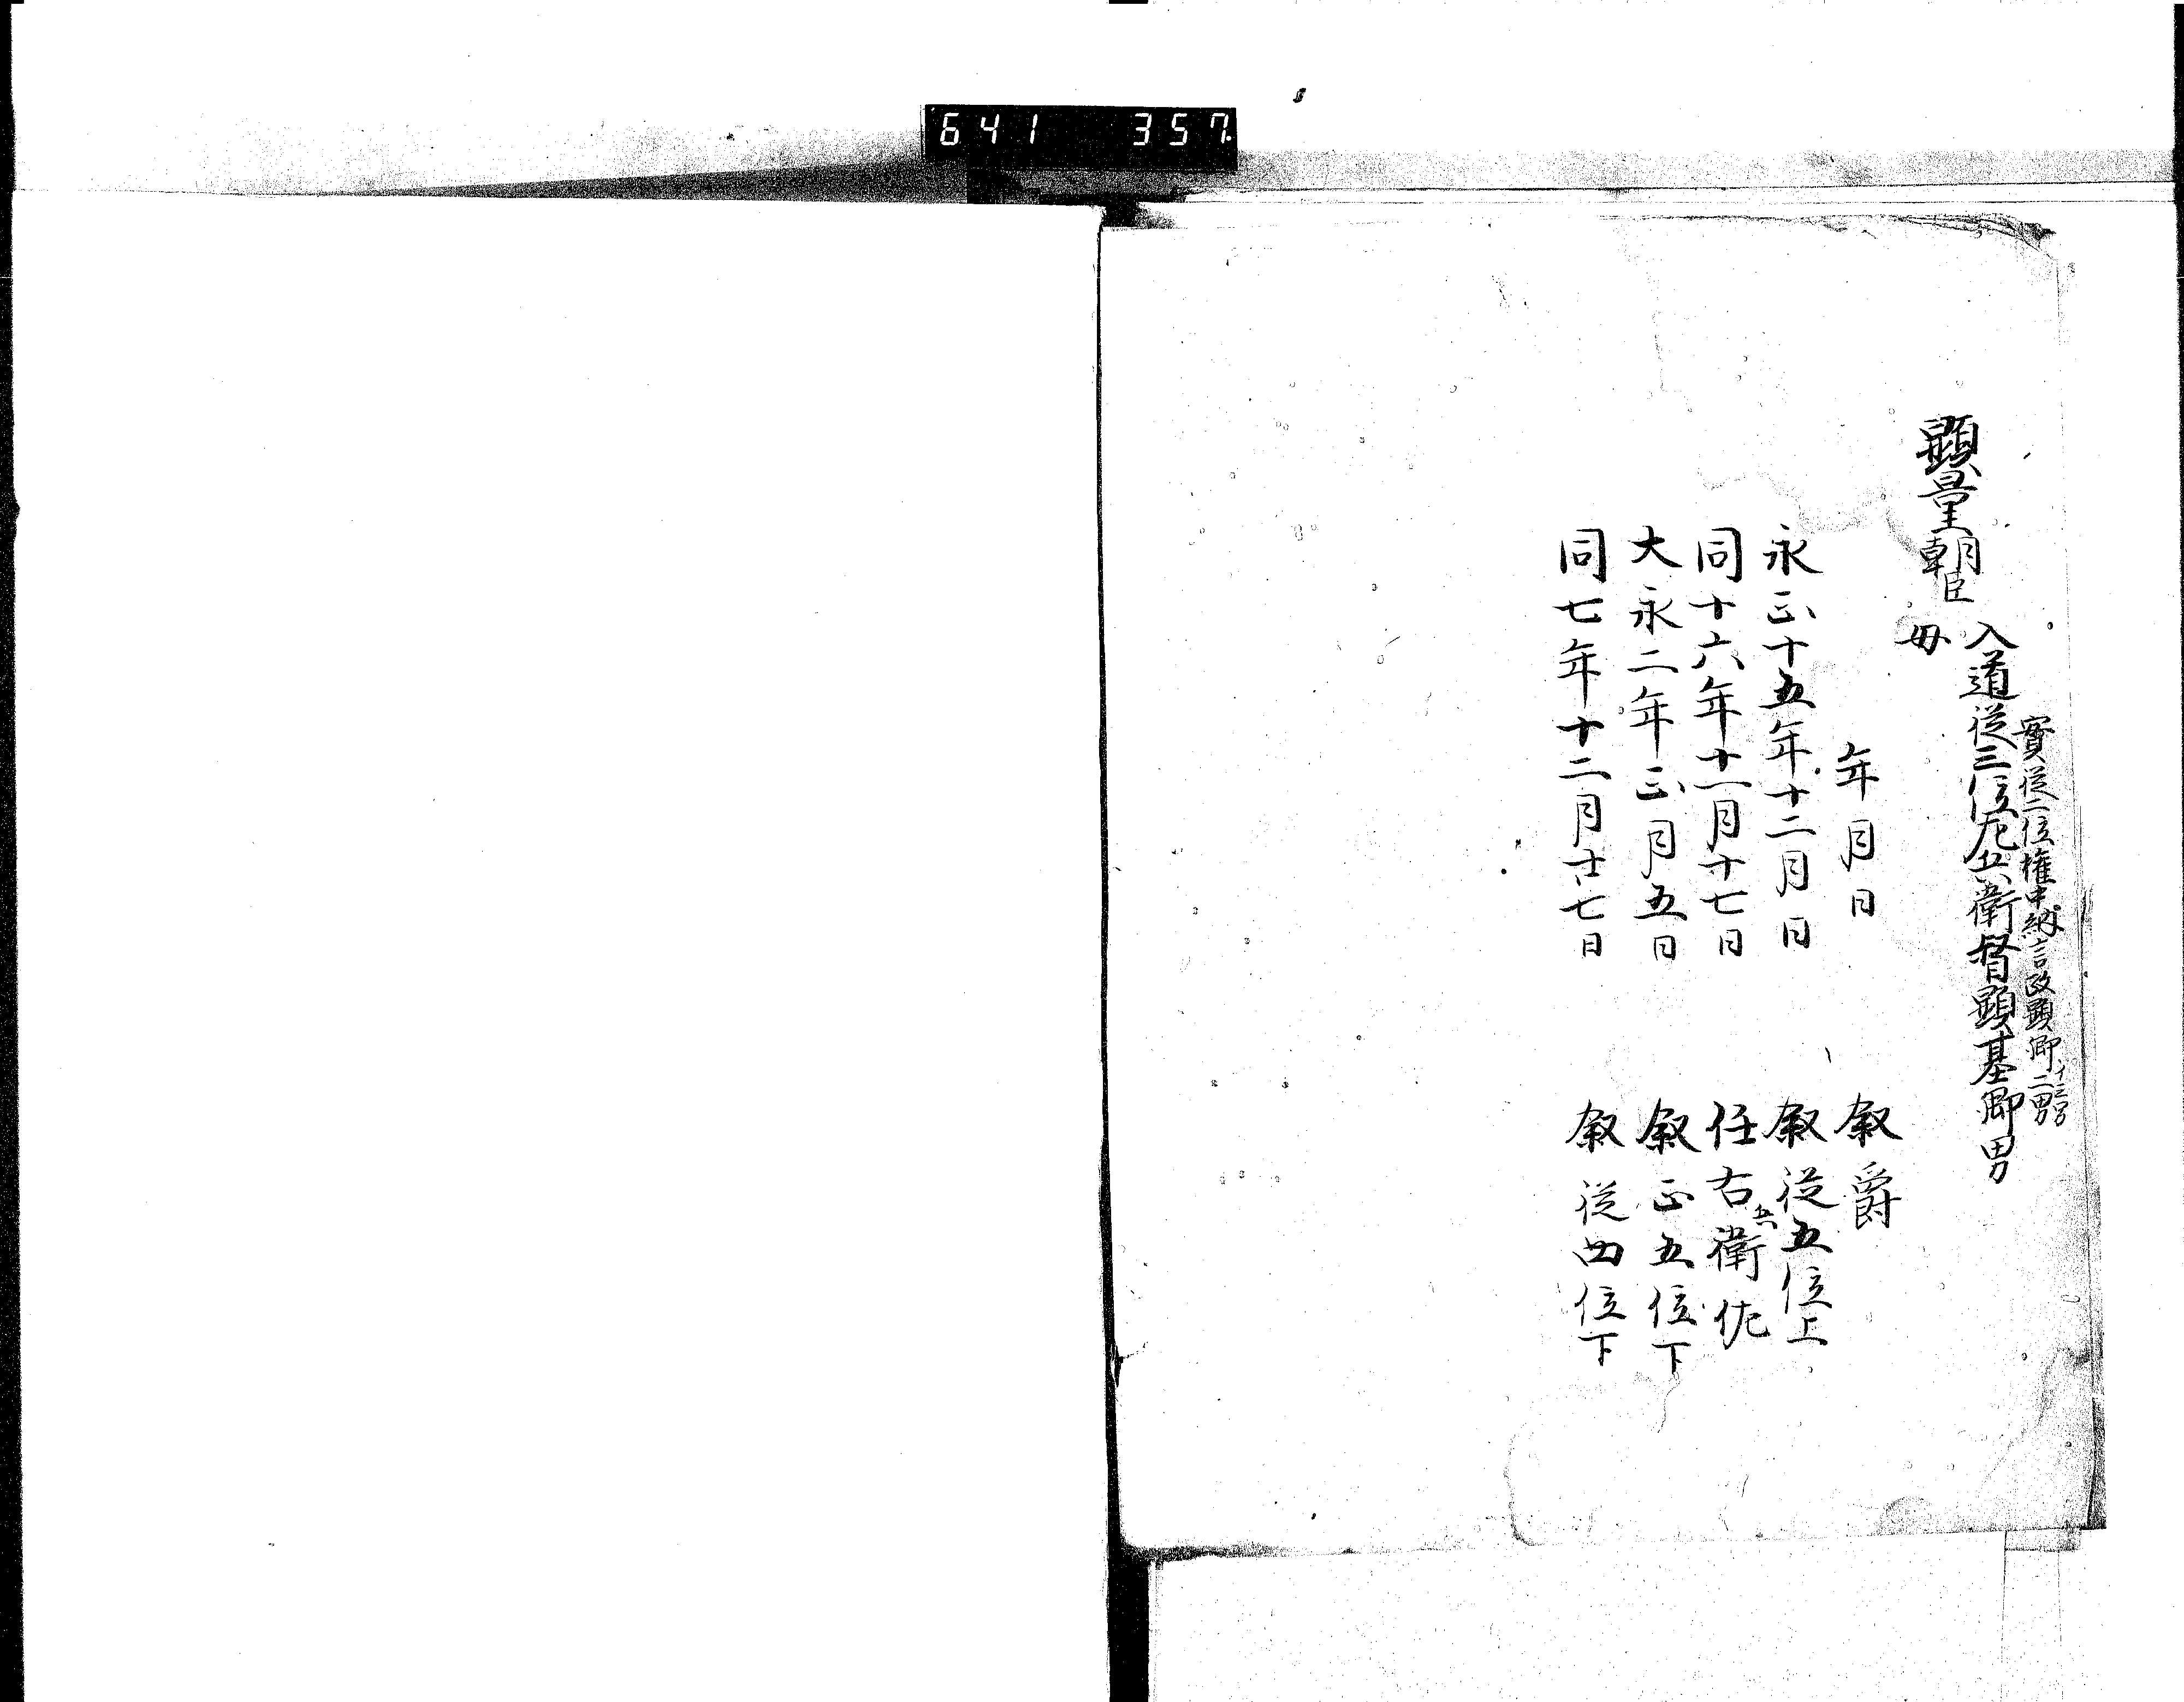 641 357
實従二位権中納言政顕卿二男
イ三男
入道従三位左兵衛督顕基卿男
顕量朝臣
母
年月日 叙爵
永正十五年十二月日 叙従五位上
同十六年十一月十七日 任右兵衛佐
大永二年正月五日 叙正五位下
同七年十二月廿七日 叙従四位下